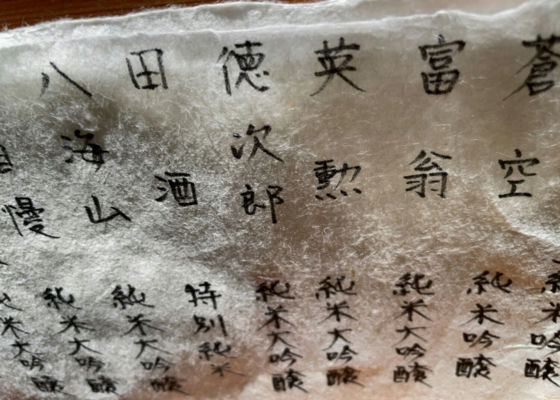 純米吟醸
蒼空 純米吟醸
富翁 純米大吟醸
英勲 純米大吟醸
徳次郎 純米大吟醸
田酒 特別純米
八海山 純米大吟醸
自慢 純米大吟醸
米大吟醸